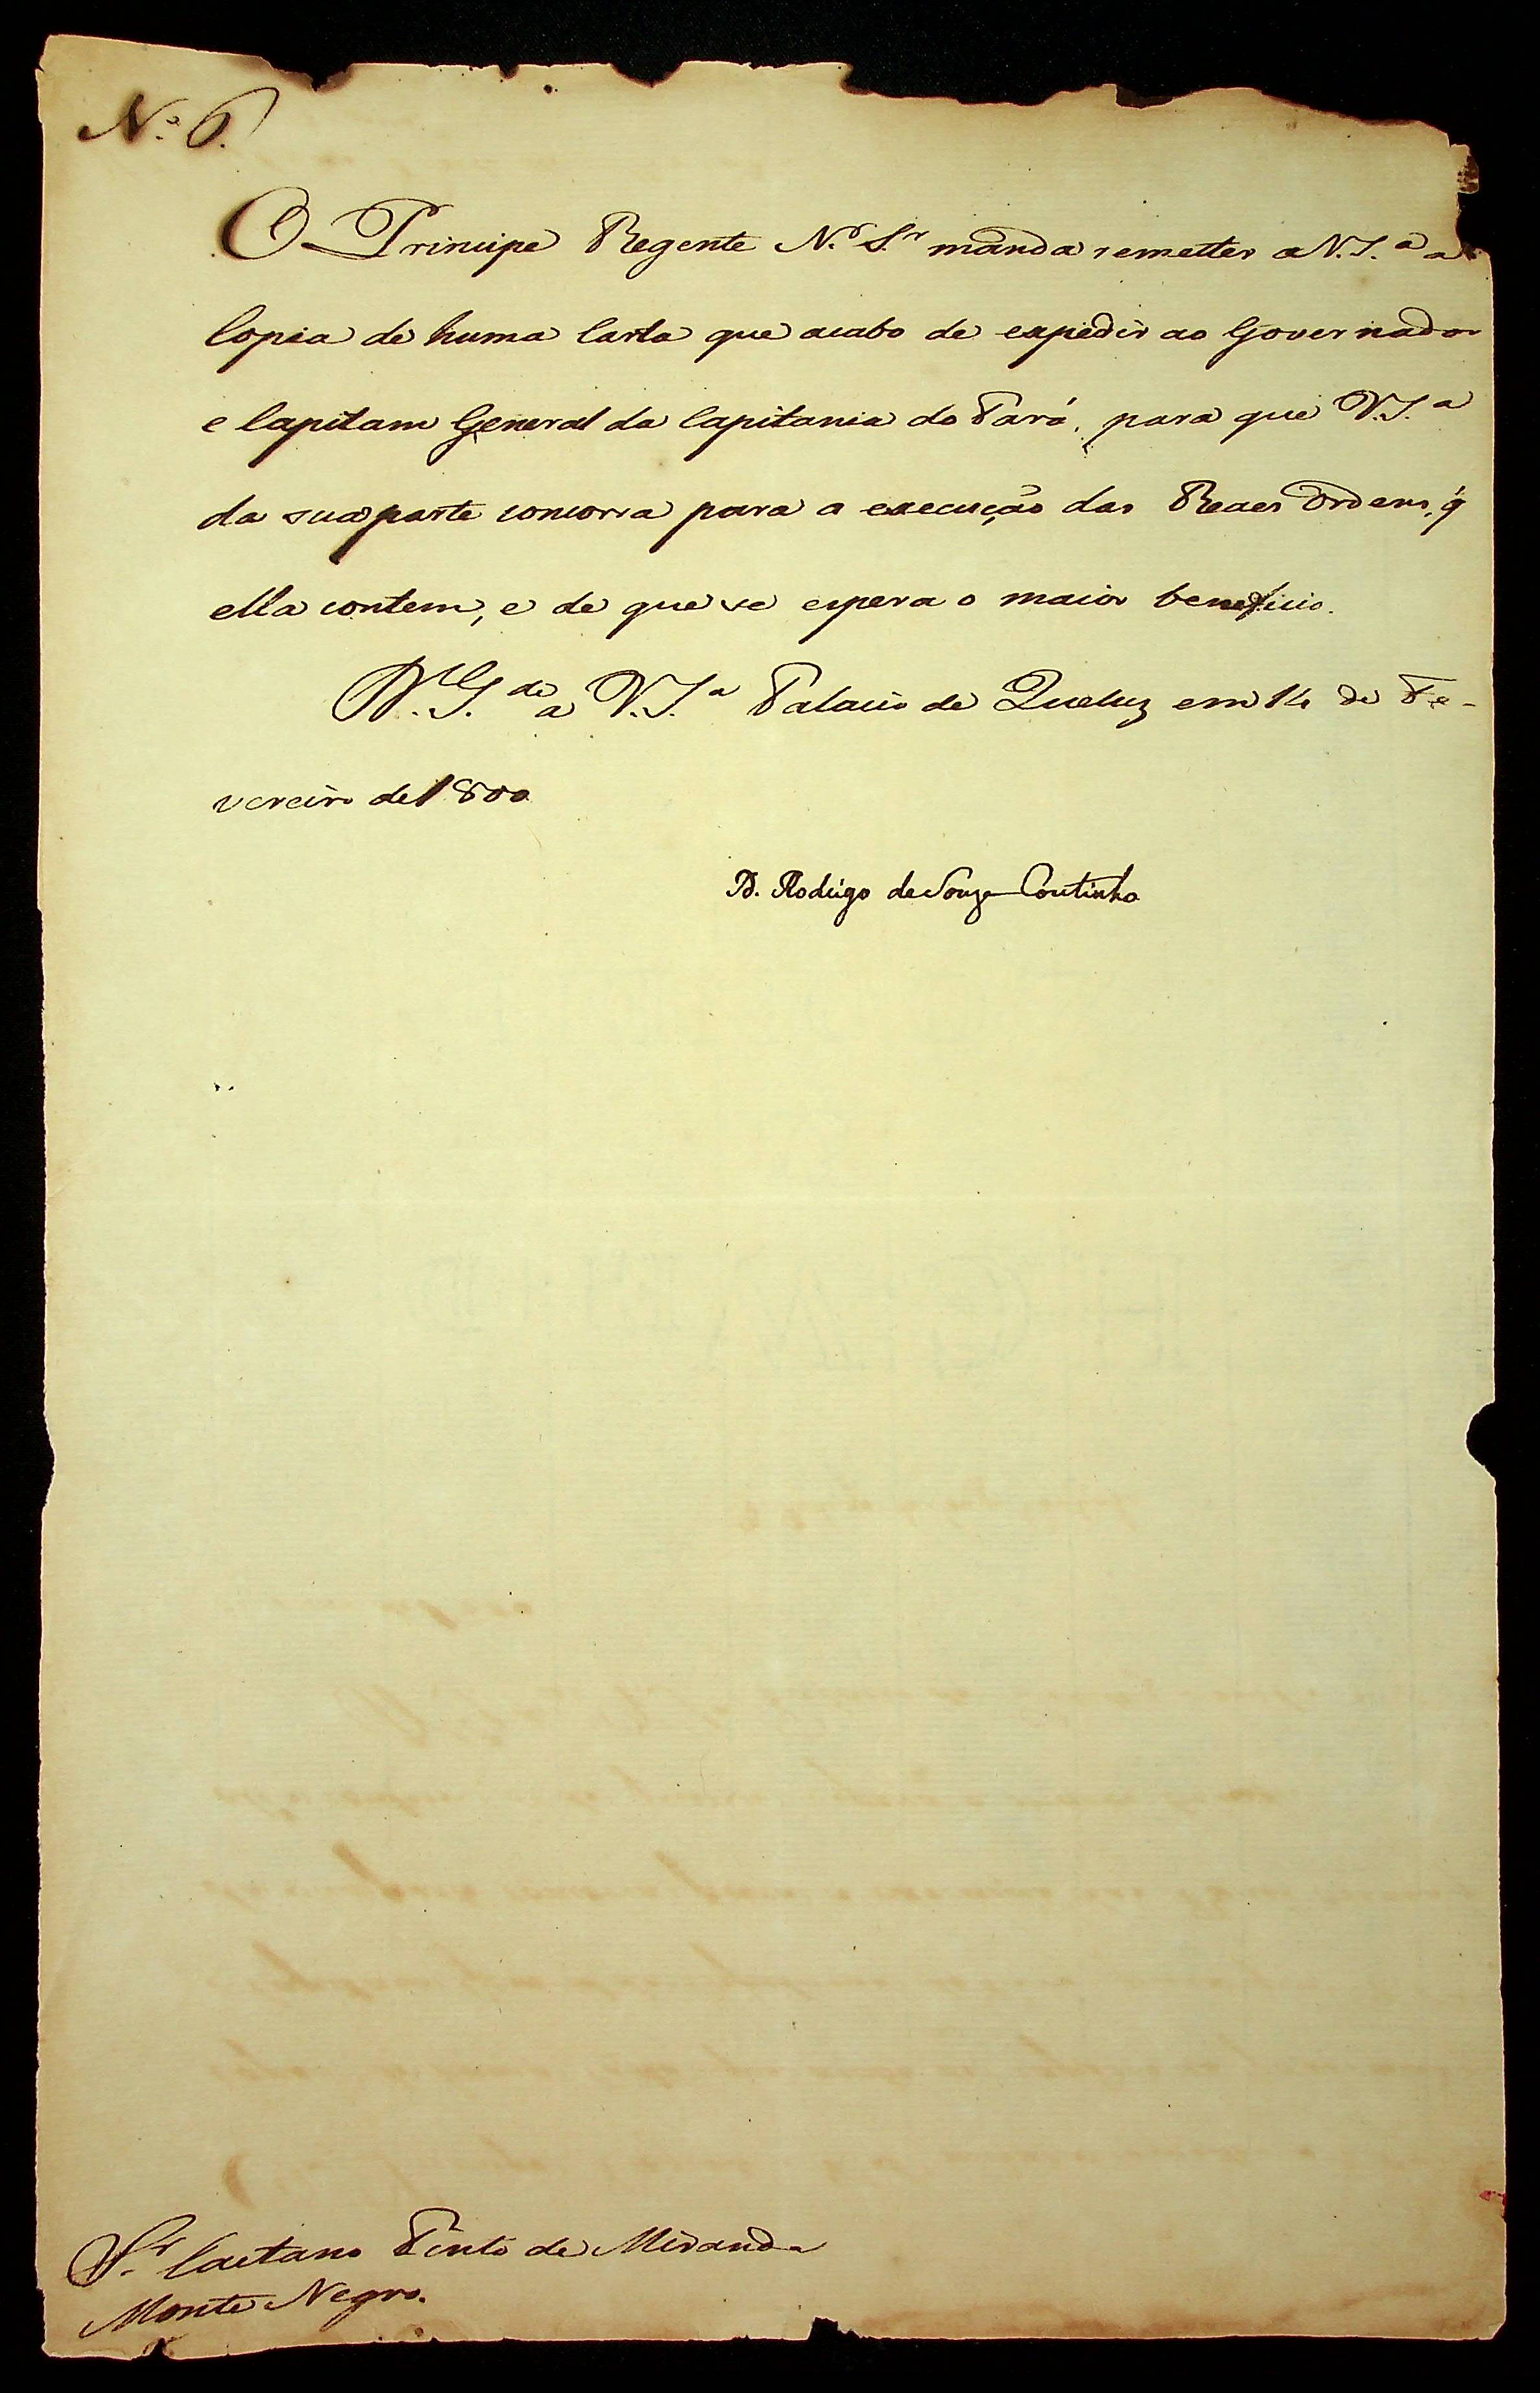 N.º 6.
O Principe Regente N.º S.ʳ manda remetter a V.S.ª a
Copia de huma Carta que acabo de expedir ao Governador
e Capitam General da Capitania do Pará, para que V.S.ª
da sua parte concorra para a execução das Reaes Ordens, q̃
ella contem, e de que se espera o maior beneficio.
D.ˢ G.ᵈᵉ a V.S.ª Palacio de Queluz em 14 de Fe-
vereiro de 1800
D. Rodrigo de Souza Coutinho
S.ʳ Caetano Pinto de Miranda
Monte Negro.